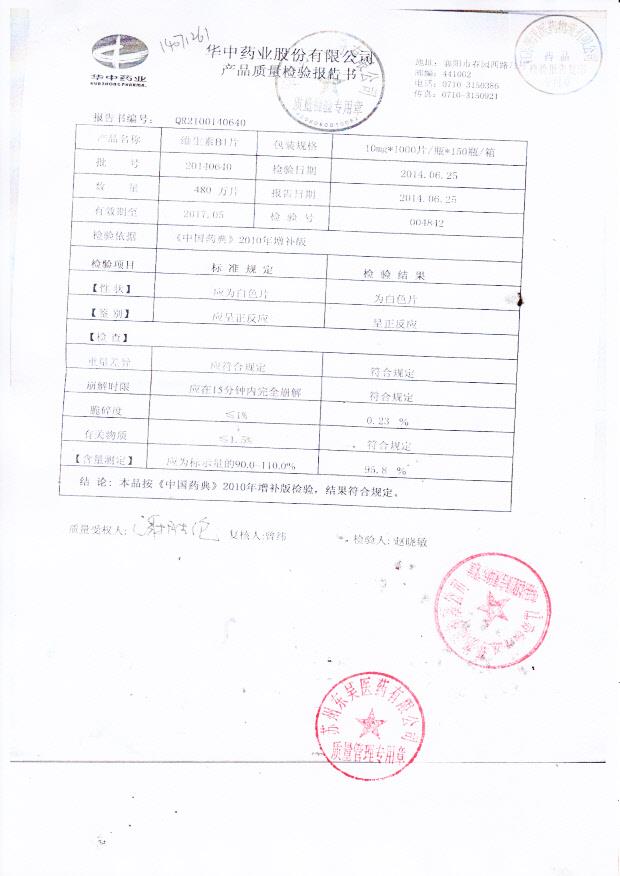 14071261
华中药业股份有限公司
产品质量检验报告书
华中药业
HUAZHONG PHARMA.
邮编: 441002
电话: 0710-3150386
传真: 0710-3150921
质量检验专用章
报告书编号: QR2100140640
产品名称 维生素B1片 包装规格 10mg*1000片/瓶*150瓶/箱
批 号 20140640 检验日期 2014.06.25
数 量 480 万片 报告日期 2014.06.25
有效期至 2017.05 检 验 号 004842
检验依据 《中国药典》2010年增补版
检验项目 标 准 规 定 检 验 结 果
【性 状】 应为白色片 为白色片
【鉴 别】 应呈正反应 呈正反应
【检 查】
重量差异 应符合规定 符合规定
崩解时限 应在15分钟内完全崩解 符合规定
脆碎度 ≤1% 0.23 %
有关物质 ≤1.5% 符合规定
【含量测定】 应为标示量的90.0-110.0% 95.8 %
结 论: 本品按《中国药典》2010年增补版检验, 结果符合规定。
质量受权人: 复核人:曾纬 检验人: 赵晓敏
苏州东吴医药有限公司
质量管理专用章